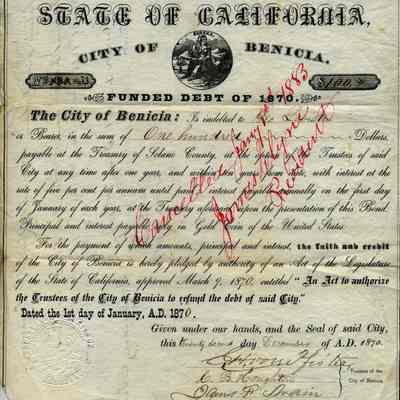 STATE OF CALIFORNIA,
CITY OF BENICIA.
EUREKA
$100
FUNDED DEBT OF 1870.
The City of Benicia: Is indebted to
or Bearer, in the sum of One hundred Dollars,
payable at the Treasury of Solano County, at the option of the Trustees of said
City at any time after one year, and within years from date, with interest at the
rate of five per cent per annum until paid; interest payable annually on the first day
of January of each year, at the Treasury aforesaid upon the presentation of this Bond.
Principal and interest payable only in Gold Coin of the United States.
For the payment of said amounts, principal and interest, the faith and credit
of the City of Benicia is hereby pledged by authority of an Act of the Legislature
of the State of California, approved March 9, 1870, entitled "An Act to authorize
the Trustees of the City of Benicia to refund the debt of said City."
Dated the 1st day of January, A.D. 1870.
Given under our hands, and the Seal of said City,
this day December A.D. 1870.
Trustees of the
City of Benicia.
Cancelled Jany 2nd 1883